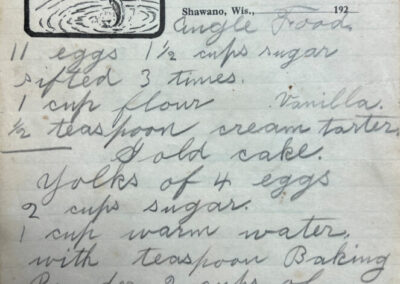 Shawano, Wis., 192
Angle Food.
11 eggs 1½ cups sugar
sifted 3 times.
1 cup flour Vanilla.
½ teaspoon cream tarter.
Gold cake.
Yolks of 4 eggs
2 cups sugar.
1 cup warm water.
with teaspoon Baking
Powder 2 cups of